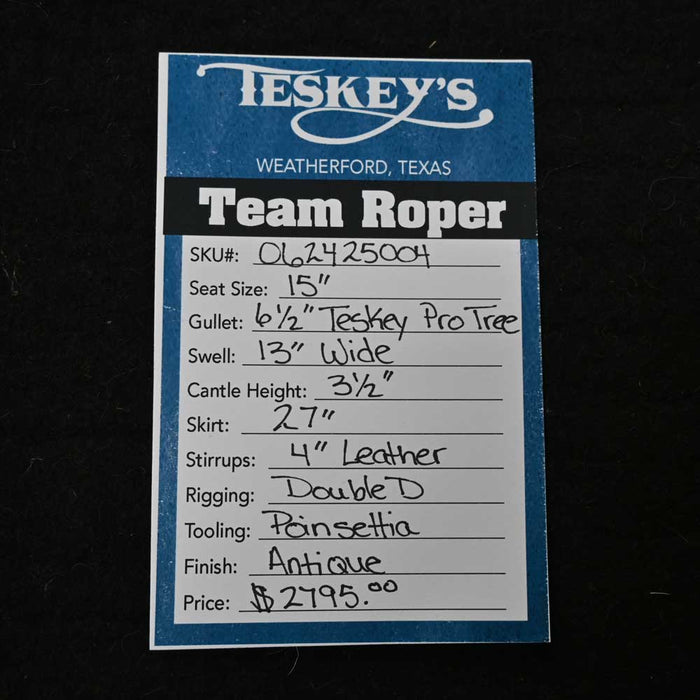 TESKEY'S
WEATHERFORD, TEXAS
Team Roper
SKU#: 062425004
Seat Size: 15"
Gullet: 6 1/2" Teskey Pro Tree
Swell: 13" Wide
Cantle Height: 3 1/2"
Skirt: 27"
Stirrups: 4" Leather
Rigging: Double D
Tooling: Poinsettia
Finish: Antique
Price: $2795.00